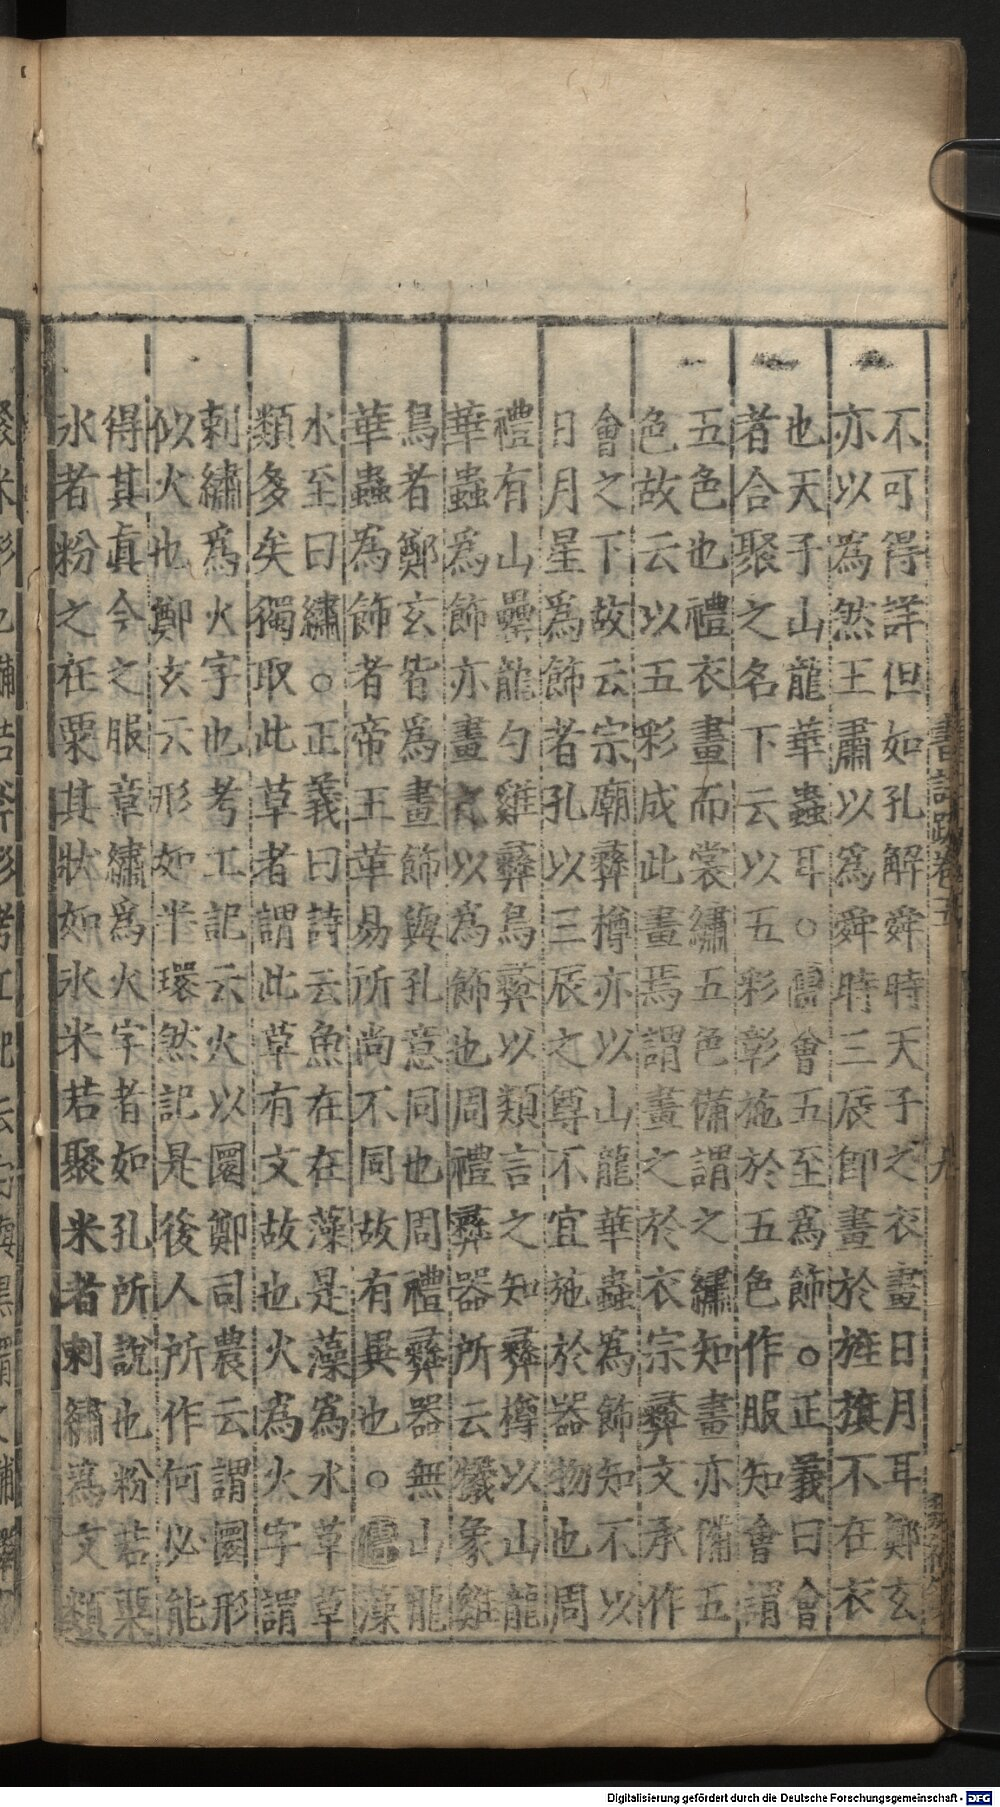 不可得詳但如孔解舜時天子之衣畫日月耳鄭玄
亦以為然王肅以為舜時三辰即畫於旌旗不在衣
也天子山龍華蟲耳○傳會五至為飾○正義曰會
者合聚之名下云以五彩彰施於五色作服知會謂
五色也禮衣畫而裳繡五色備謂之繡知畫亦備五
色故云以五彩成此畫焉謂畫之於衣宗彝文承作
會之下故云宗廟彝樽亦以山龍華蟲為飾知不以
日月星為飾者孔以三辰之尊不宜施於器物也周
禮有山罍龍勺雞彝鳥彝以類言之知彝樽以山龍
華蟲為飾亦畫之以為飾也周禮彝器所云犧象雞
鳥者鄭玄皆為畫飾與孔意同也周禮彝器無山龍
華蟲為飾者帝王革易所尚不同故有異也○傳藻
水至曰繡○正義曰詩云魚在在藻是藻為水草草
類多矣獨取此草者謂此草有文故也火為火字謂
刺繡為火字也考工記云火以圜鄭司農云謂圜形
似火也鄭玄云形如半環然記是後人所作何必能
得其真今之服章繡為火字者如孔所說也粉若粟
冰者粉之在粟其狀如冰米若聚米者刺繡為文類
書註疏卷五
九